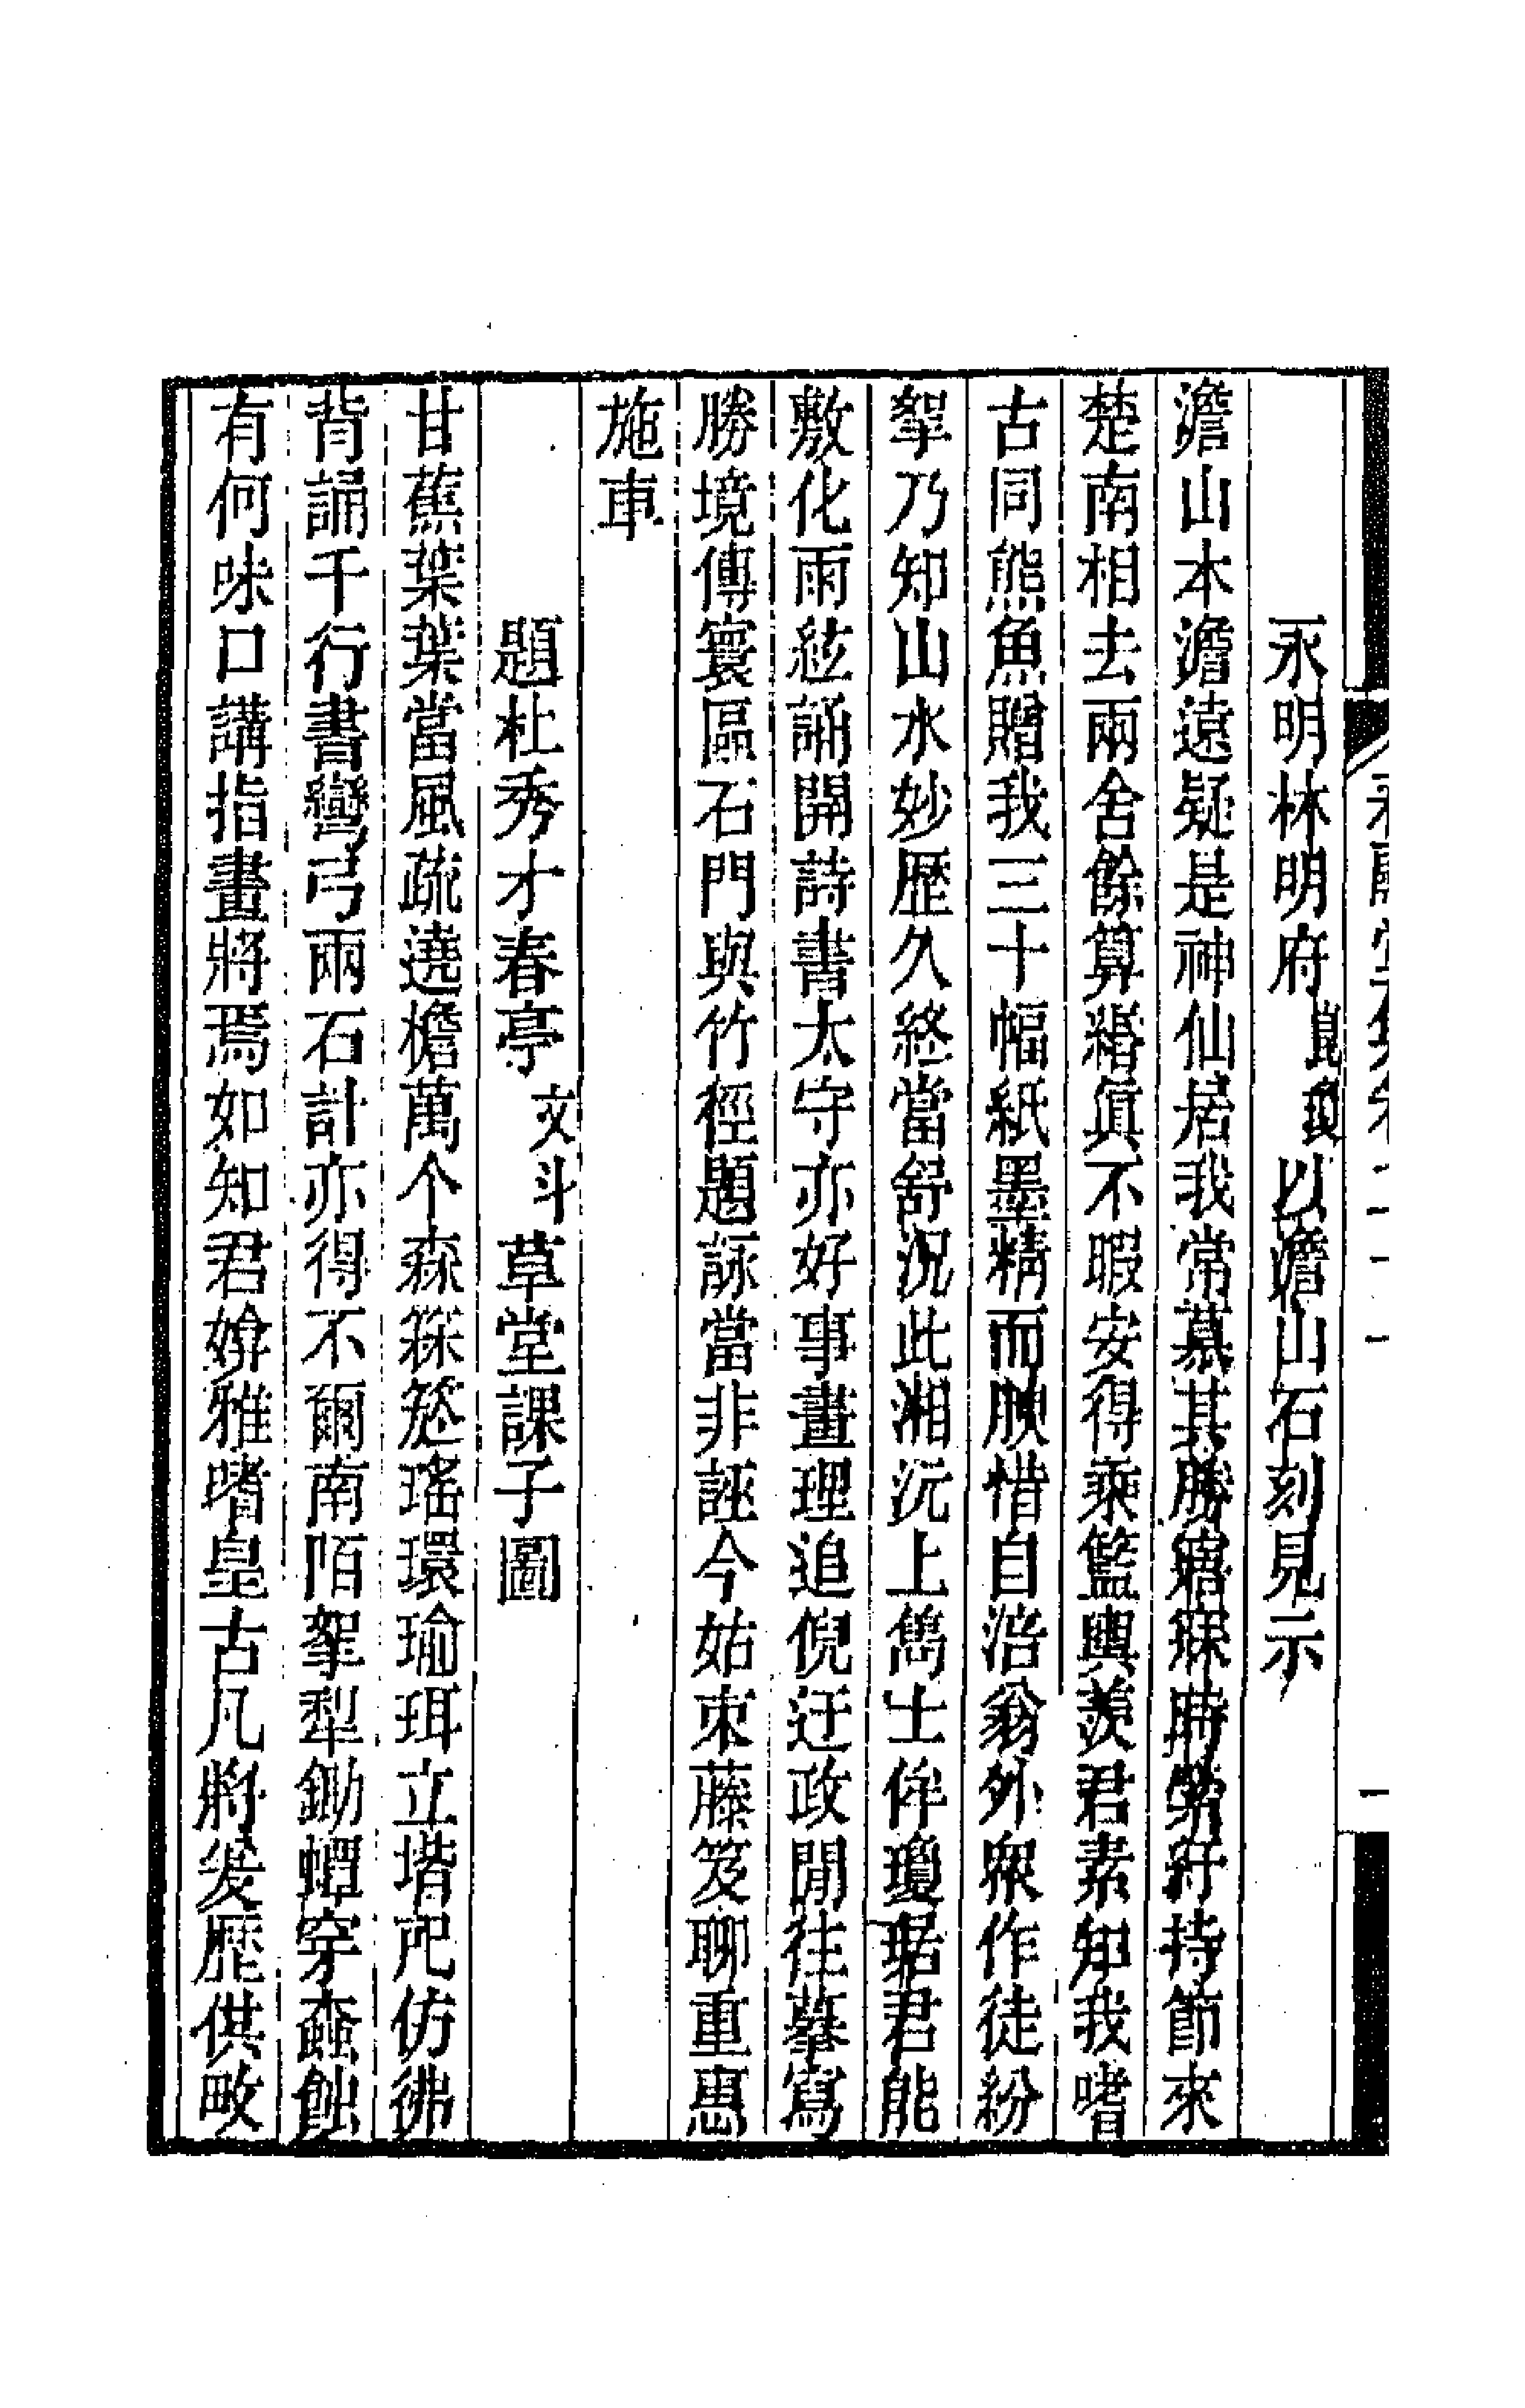 永明林明府崑瓊以澹山石刻見示
澹山本澹遠疑是神仙居我常慕其勝寤寐時縈紆持節來
楚南相去兩舍餘算緡眞不暇安得乘籃輿羨君素知我嗜
古同熊魚贈我三十幅紙墨精而腴惜自涪翁外衆作徒紛
挐乃知山水妙歷久終當舒況此湘沅上雋士侔瓊琚君能
敷化雨絃誦開詩書太守亦好事畫理追倪迂政閒往摹寫
勝境傳寰區石門與竹徑題詠當非誣今姑束藤笈聊重惠
施車
題杜秀才春亭文斗草堂課子圖
甘蕉葉葉當風疏遶檐萬个森箖箊瑤環瑜珥立堦戺仿彿
背誦千行書彎弓兩石計亦得不爾南陌挐犁鋤蟫穿蠹蝕
有何味口講指畫將焉如知君媕雅嗜皇古凡將爰歷供畋